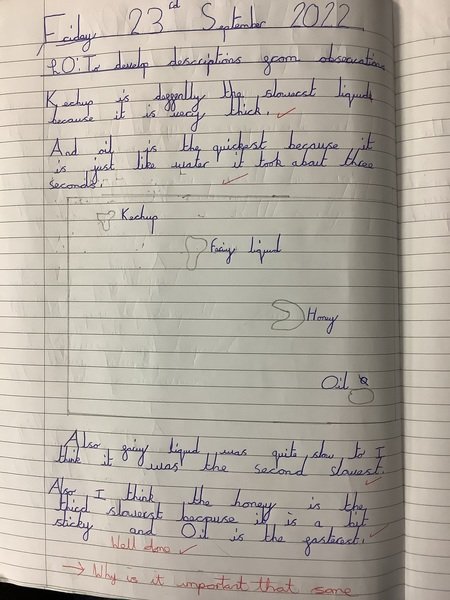 Friday 23rd September 2022
LO: To develop descriptions from observations
Kechup is deffenally the slowest liquid
because it is very thick.
And oil is the quickest because it
is just like water it took about three
seconds.
Kechup
Fairy liquid
Honey
Oil
Also fairy liquid was quite slow to I
think it was the second slowest.
Also I think the honey is the
third slowerst because it is a bit
sticky and Oil is the fasterest.
Well done
→ Why is it important that some